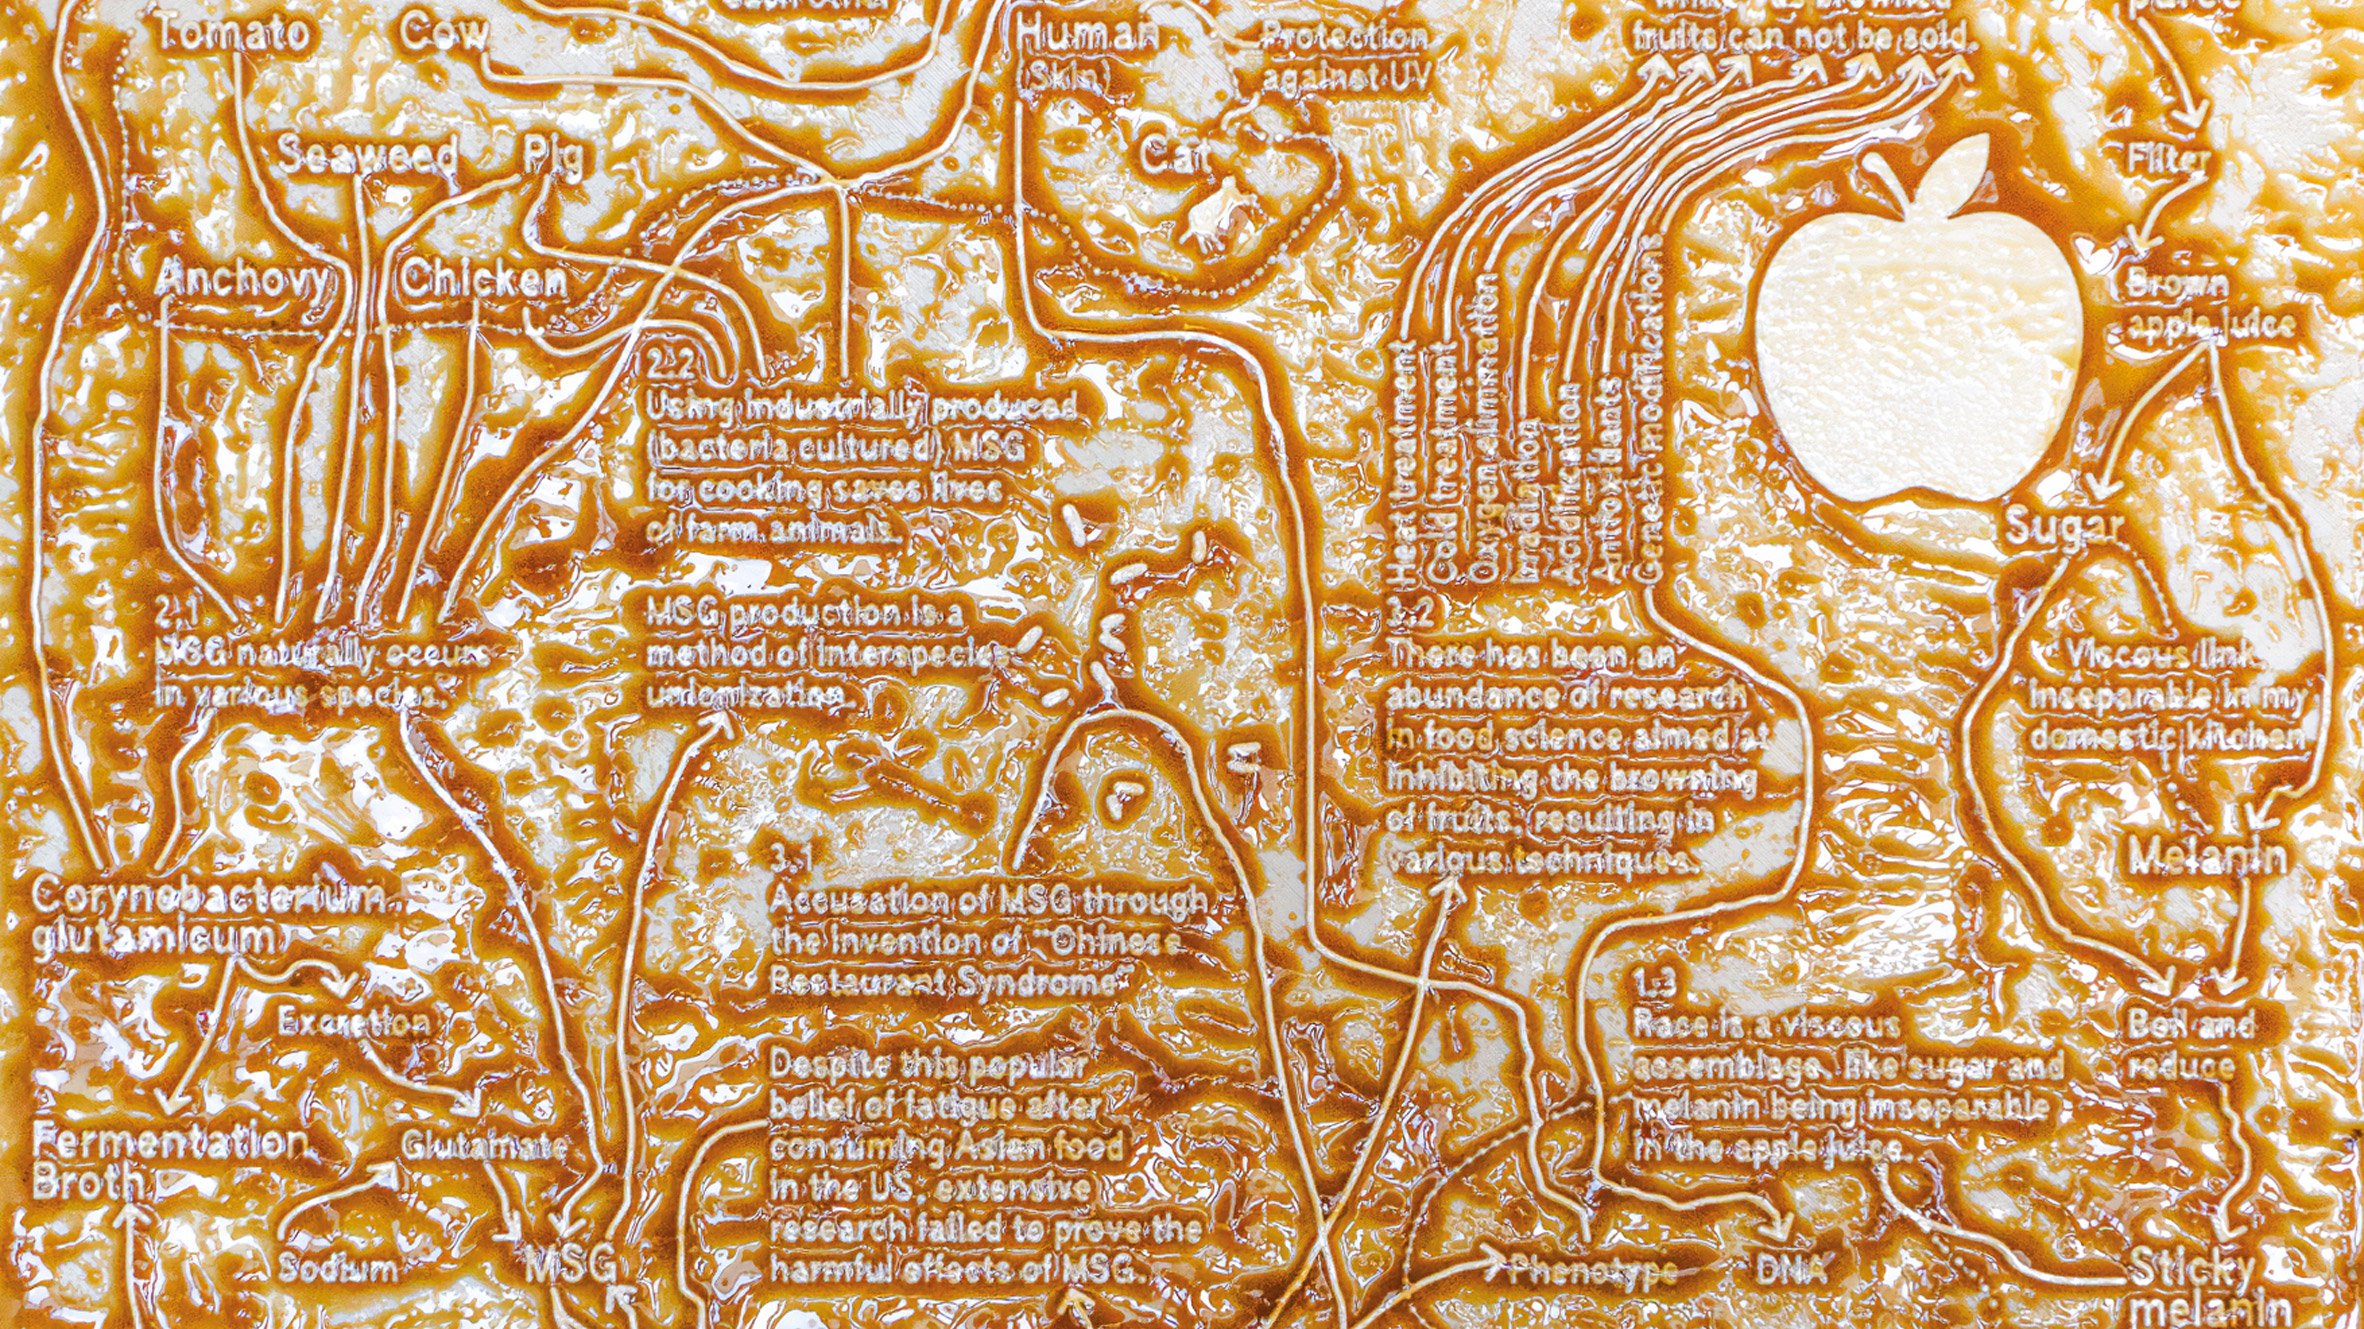 Tomato
Cow
Human
(Skin)
Protection
against UV
fruits can not be sold.
Seaweed
Pig
Cat
Filter
Anchovy
Chicken
Brown
apple juice
2.2
Using industrially produced
(bacteria cultured) MSG
for cooking saves lives
of farm animals.
Heat treatment
Cold treatment
Oxygen elimination
Irradiation
Acidification
Antioxidants
Genetic modification
Sugar
2.1
MSG naturally occurs
in various species.
MSG production is a
method of interspecies
unionization.
3.2
There has been an
abundance of research
in food science aimed at
inhibiting the browning
of fruits, resulting in
various techniques.
Viscous link
inseparable in my
domestic kitchen
Melanin
Corynebacterium
glutamicum
3.1
Accusation of MSG through
the invention of "Chinese
Restaurant Syndrome"
Excretion
1.3
Race is a viscous
assemblage, like sugar and
melanin being inseparable
in the apple juice.
Boil and
reduce
Despite this popular
belief of fatigue after
consuming Asian food
in the US, extensive
research failed to prove the
harmful effects of MSG.
Fermentation
Broth
Glutamate
Sodium
MSG
Phenotype
DNA
Sticky
melanin